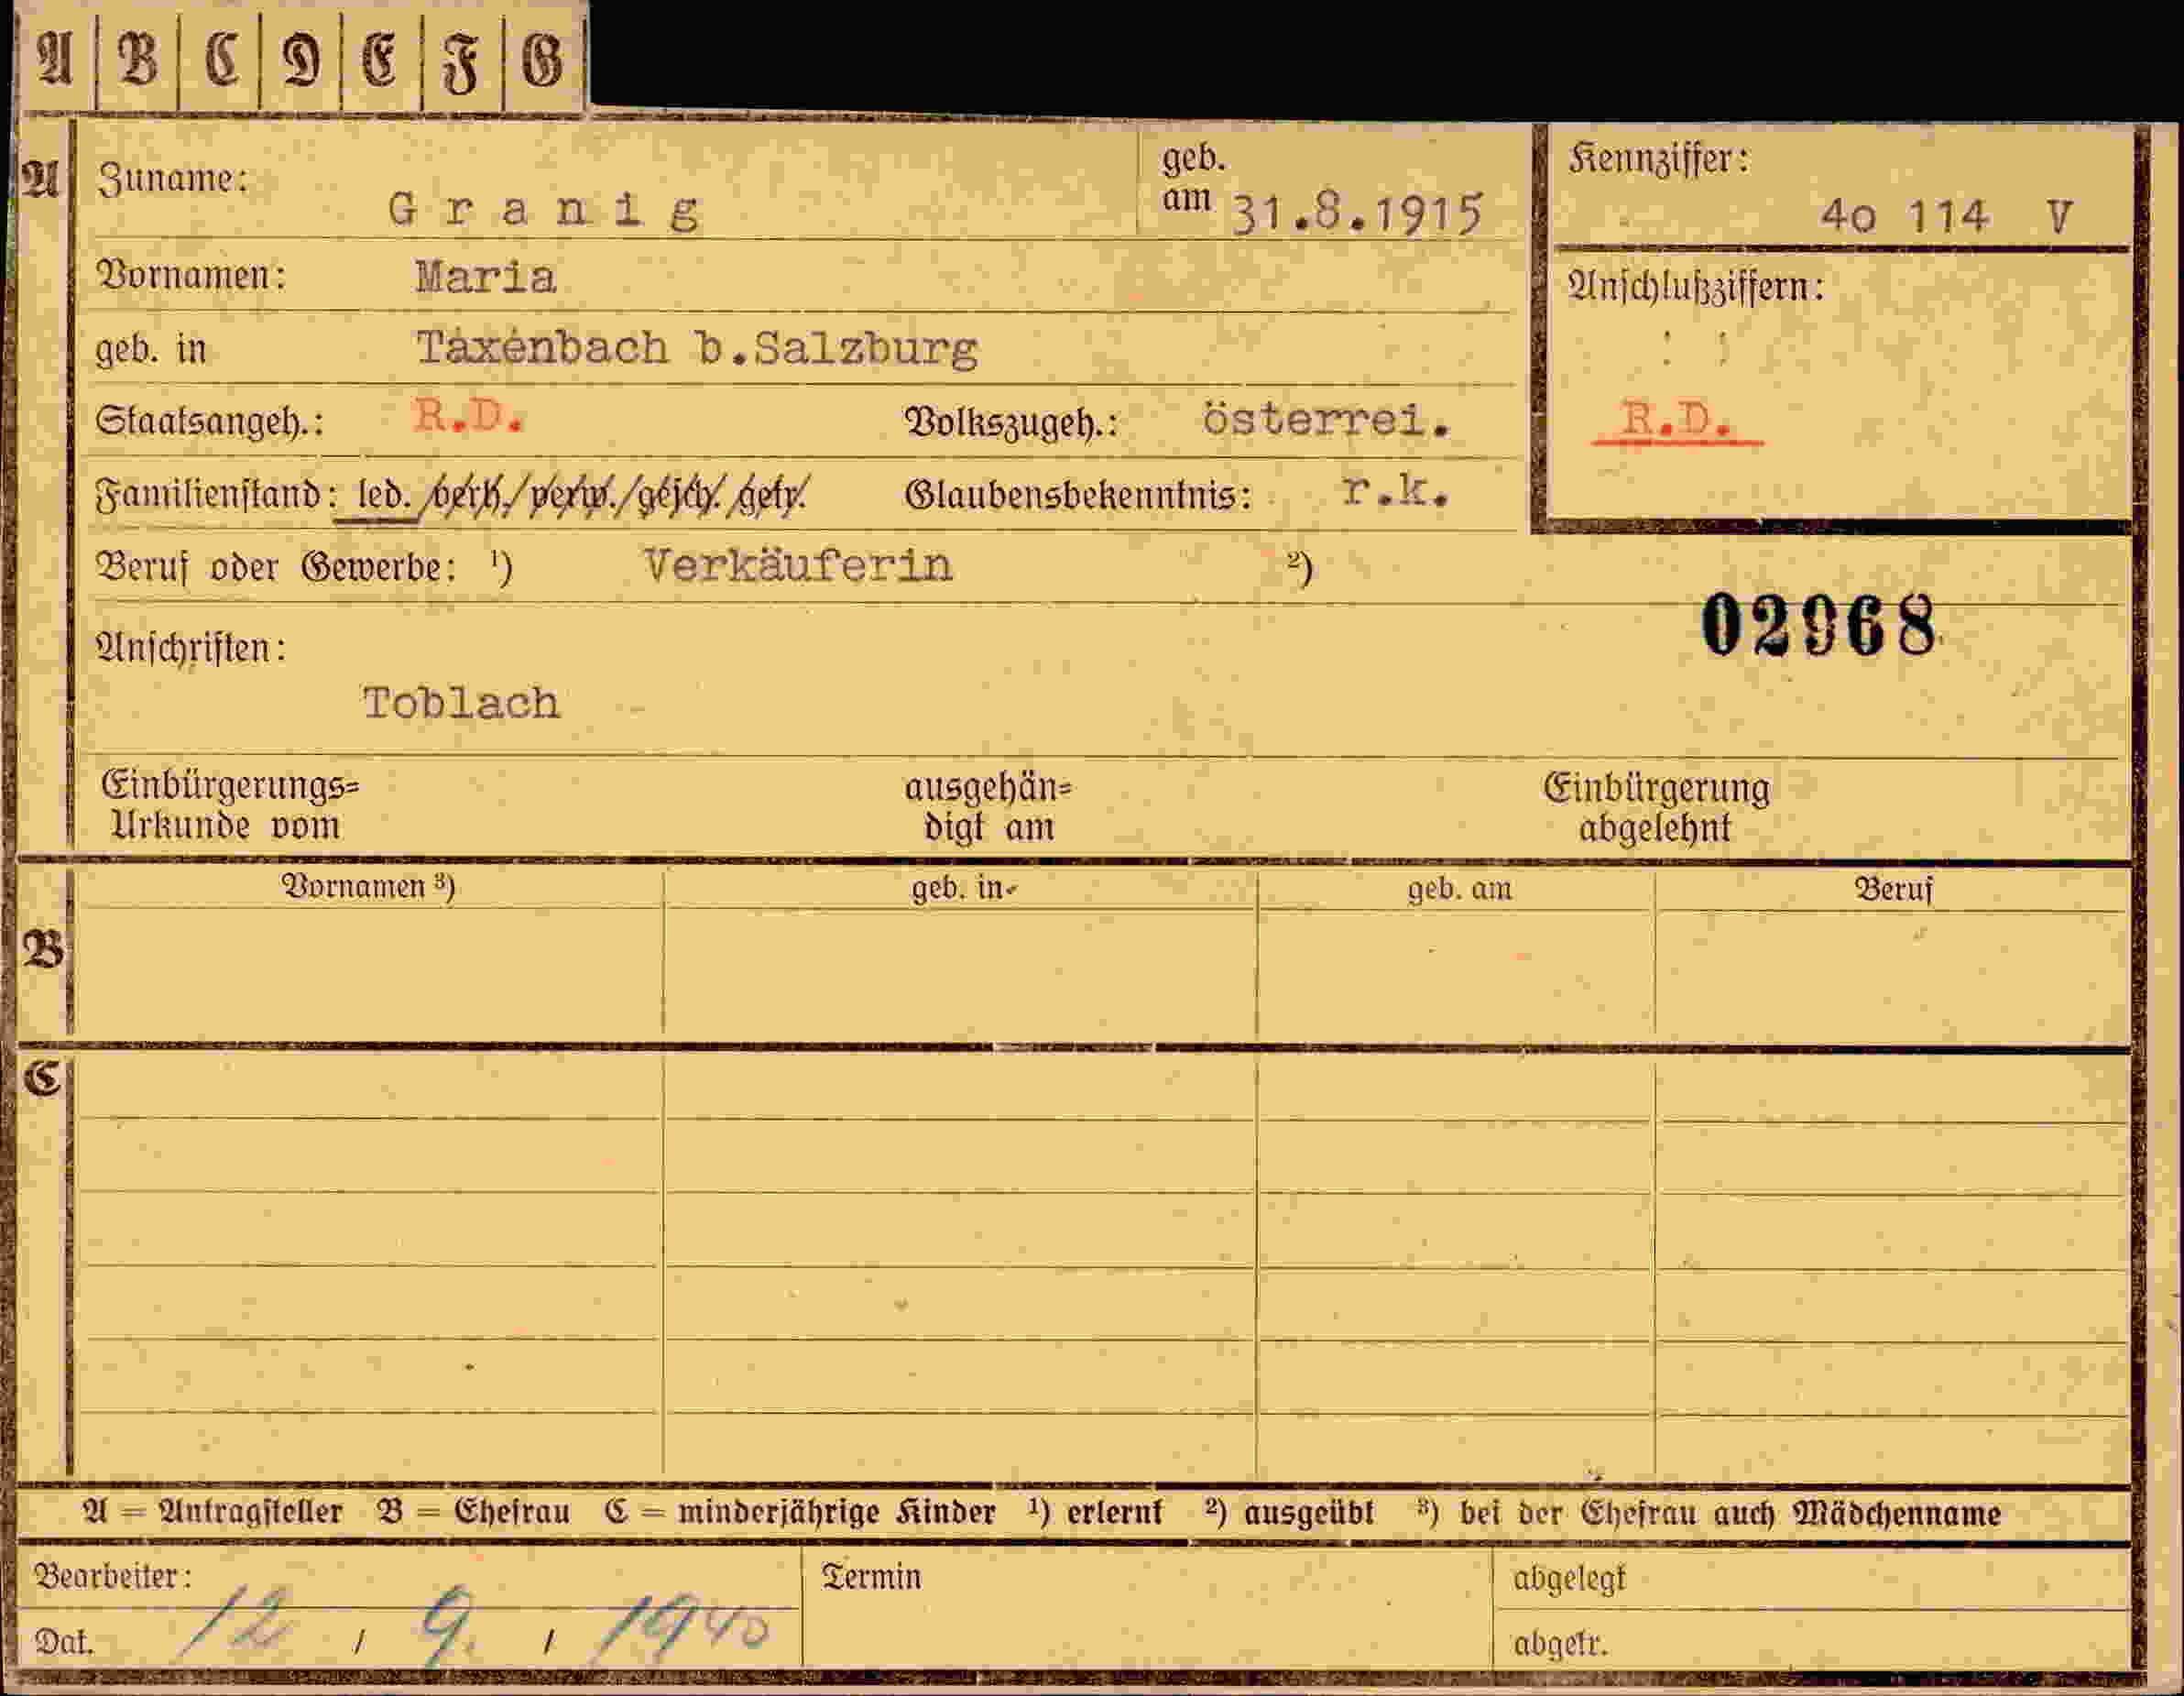 A B C D E F G
A Zuname: Granig geb. am 31.8.1915
Kennziffer: 4o 114 V
Vornamen: Maria
Anschlußziffern:
geb. in Taxenbach b.Salzburg
Staatsangeh.: R.D. Volkszugeh.: österrei.
R.D.
Familienstand: led. /verh./verw./gesch./getr. Glaubensbekenntnis: r.k.
Beruf oder Gewerbe: ¹) Verkäuferin ²)
02968
Anschriften:
Toblach
Einbürgerungs= ausgehän= Einbürgerung
Urkunde vom digt am abgelehnt
Vornamen ³) geb. in geb. am Beruf
B
C
A = Antragsteller B = Ehefrau C = minderjährige Kinder ¹) erlernt ²) ausgeübt ³) bei der Ehefrau auch Mädchenname
Bearbeiter: Termin abgelegt
Dat. 12 / 9. / 1940 abgetr.